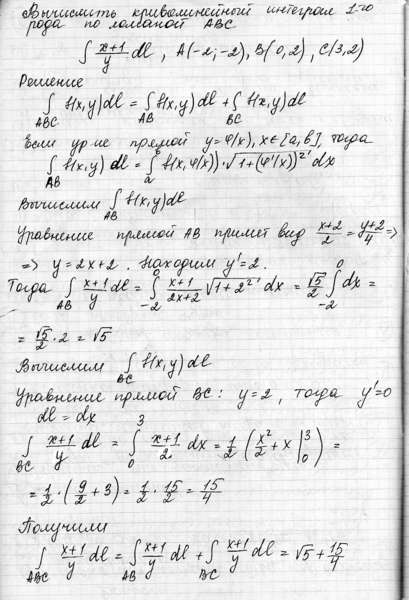 Вычислить криволинейный интеграл 1-го
рода по ломаной ABC
∫ (x+1)/y dl, A(-2;-2), B(0,2), C(3,2)
Решение
∫_{ABC} f(x,y)dl = ∫_{AB} f(x,y)dl + ∫_{BC} f(x,y)dl
Если ур-ие прямой y=φ(x), x∈[a,b], тогда
∫_{AB} f(x,y) dl = ∫_a^b f(x,φ(x))·√(1+(φ'(x))²) dx
Вычислим ∫_{AB} f(x,y)dl
Уравнение прямой AB примет вид (x+2)/2 = (y+2)/4 =>
=> y=2x+2. Находим y'=2.
Тогда ∫_{AB} (x+1)/y dl = ∫_{-2}^0 (x+1)/(2x+2) √(1+2²) dx = √5/2 ∫_{-2}^0 dx =
= √5/2 · 2 = √5
Вычислим ∫_{BC} f(x,y)dl
Уравнение прямой BC: y=2, тогда y'=0
dl = dx
∫_{BC} (x+1)/y dl = ∫_0^3 (x+1)/2 dx = 1/2 (x²/2 + x |_0^3) =
= 1/2·(9/2 + 3) = 1/2 · 15/2 = 15/4
Получили
∫_{ABC} (x+1)/y dl = ∫_{AB} (x+1)/y dl + ∫_{BC} (x+1)/y dl = √5 + 15/4